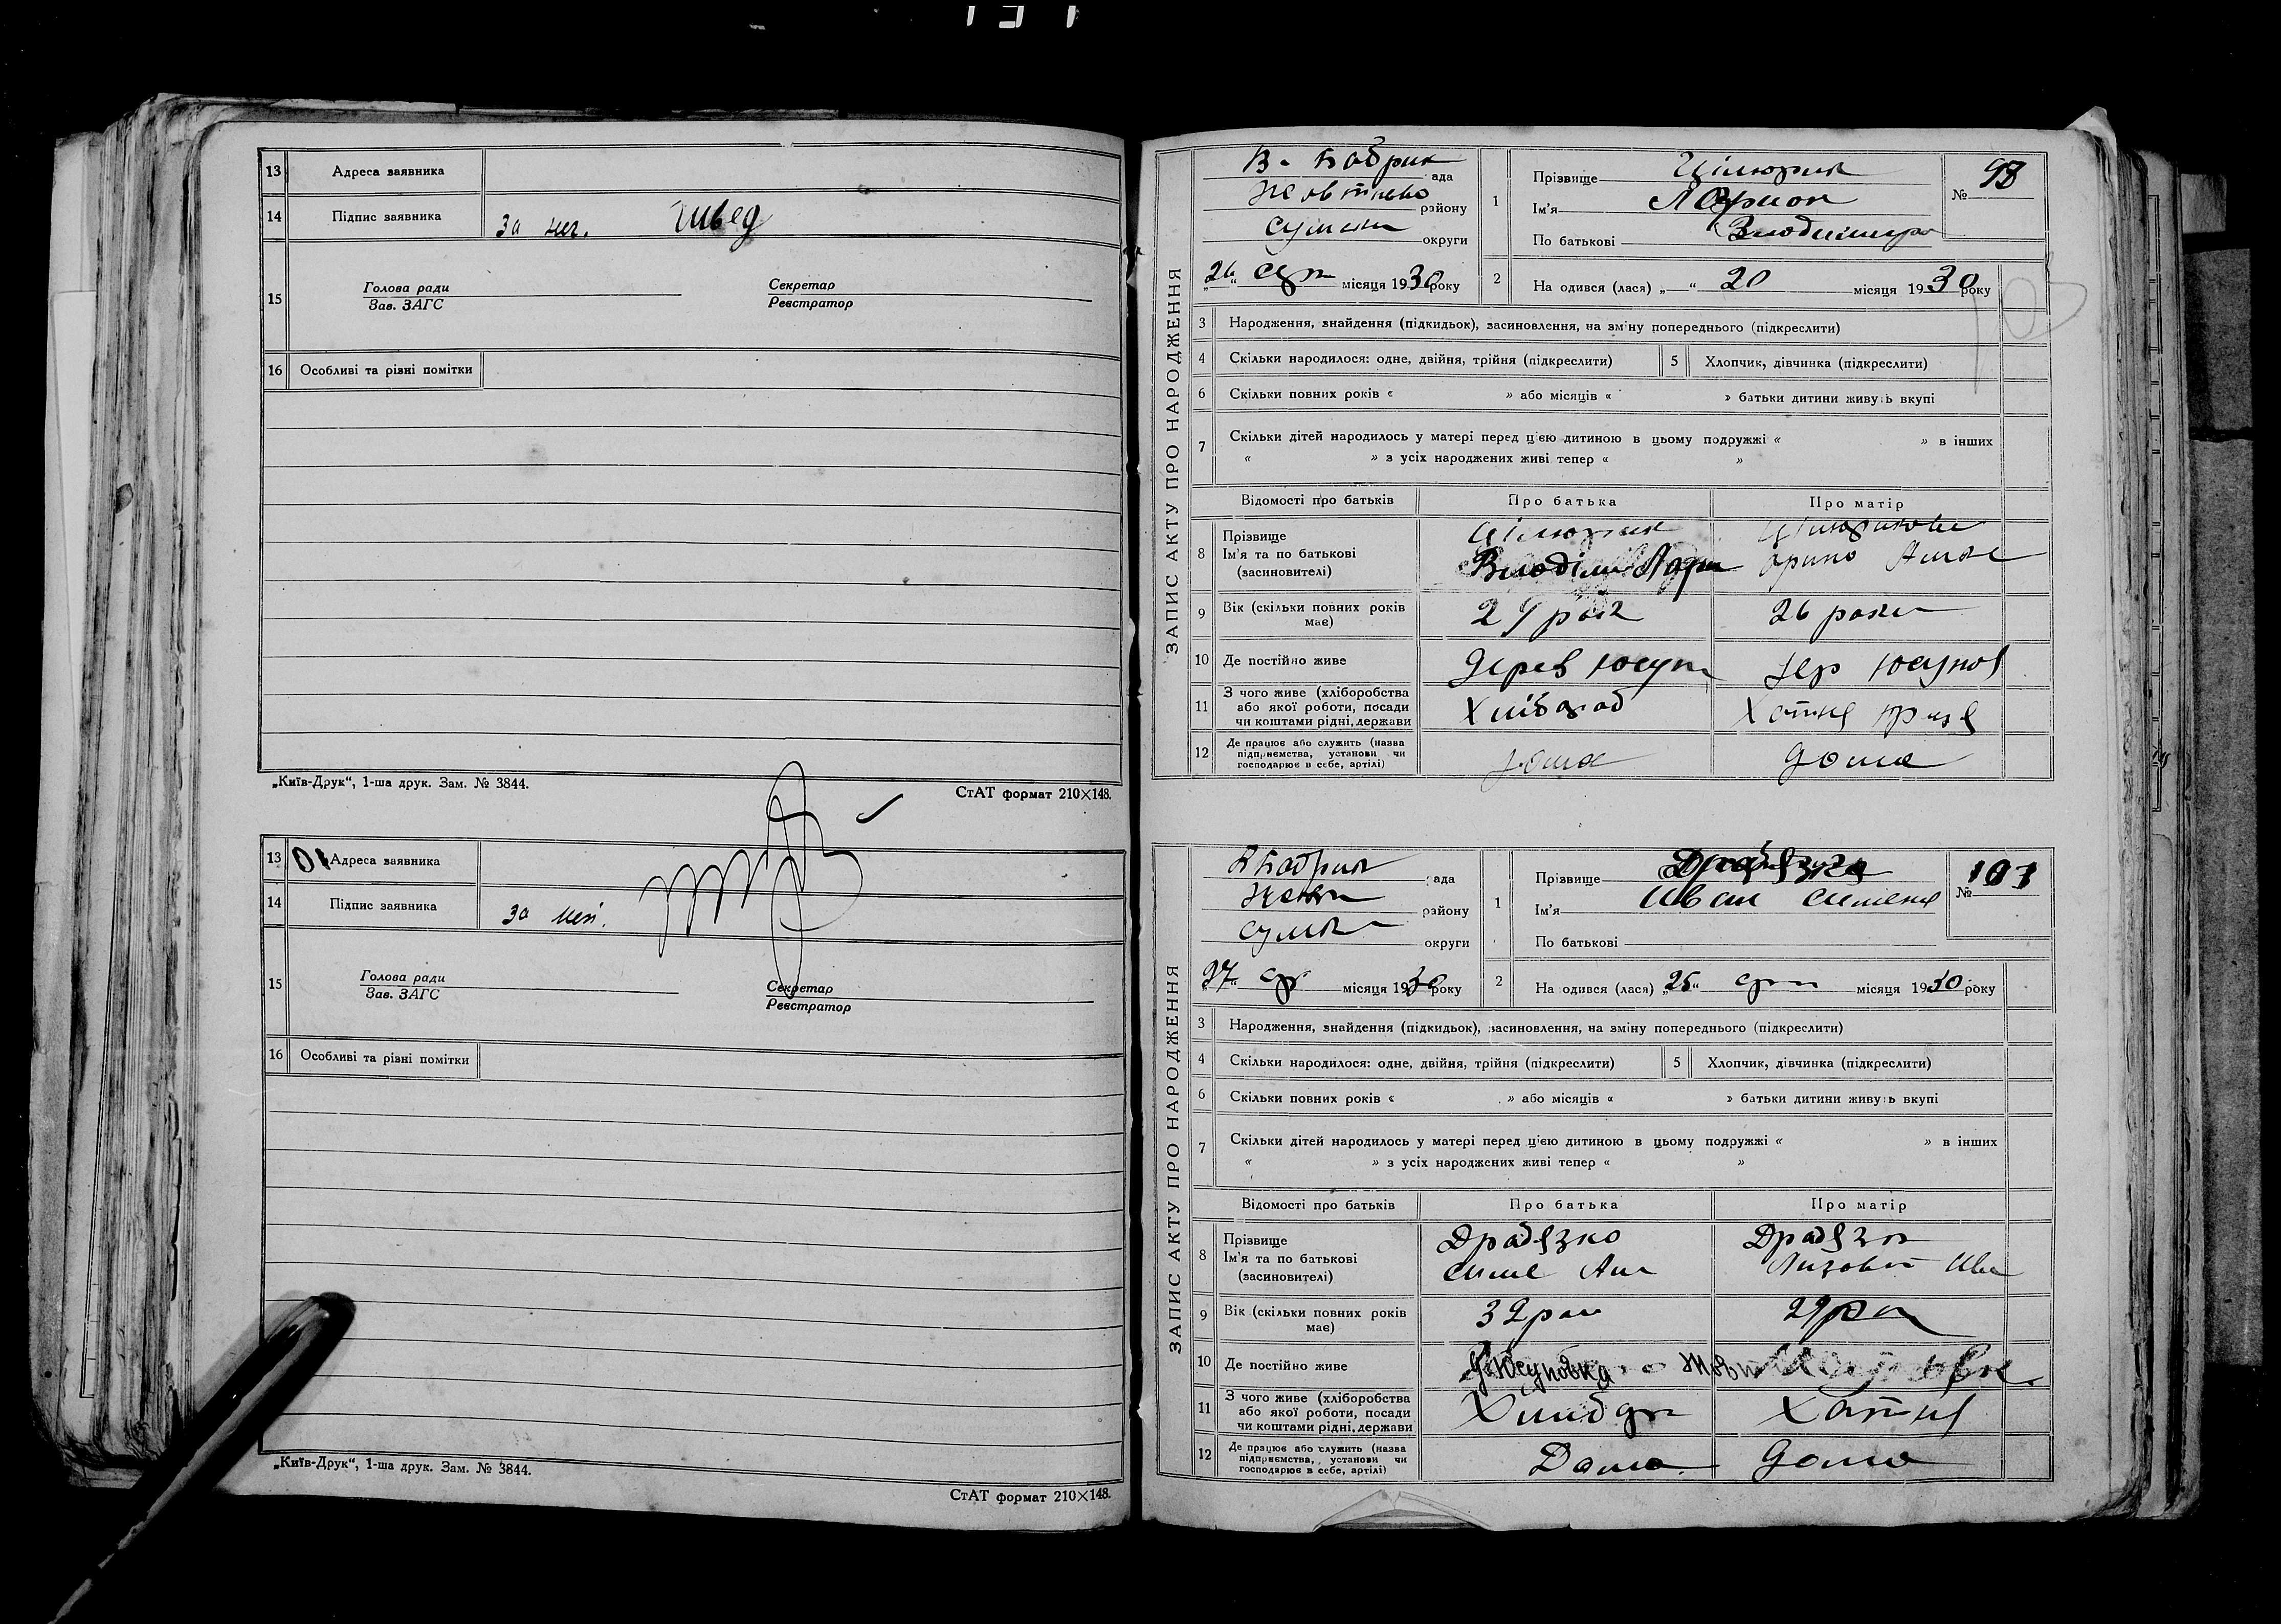 13 Адреса заявника
14 Підпис заявника За нег. Швед
15 Голова ради Секретар
Зав. ЗАГС Реєстратор
16 Особливі та різні помітки
„Київ-Друк“, 1-ша друк. Зам. № 3844.
СтАТ формат 210×148.
13 Адреса заявника
14 Підпис заявника За
15 Голова ради Секретар
Зав. ЗАГС Реєстратор
16 Особливі та різні помітки
„Київ-Друк“, 1-ша друк. Зам. № 3844.
СтАТ формат 210×148.
ЗАПИС АКТУ ПРО НАРОДЖЕННЯ
В. Бобрик ада
Жовтнево району
Сумськ округи
„26“ Сер місяця 1930 року
1 Прізвище Цілюрик
Ім'я Ларион
По батькові Володимир
№ 98
2 На одився (лася) „ “ 20 місяця 1930 року
3 Народження, знайдення (підкидьок), засиновлення, на зміну попереднього (підкреслити)
4 Скільки народилося: одне, двійня, трійня (підкреслити) 5 Хлопчик, дівчинка (підкреслити)
6 Скільки повних років « » або місяців « » батьки дитини живуть вкупі
7 Скільки дітей народилось у матері перед цією дитиною в цьому подружжі « » в інших
« » з усіх народжених живі тепер « »
Відомості про батьків Про батька Про матір
8 Прізвище Цілюрик Цілюрикова
Ім'я та по батькові
(засиновителі) Володим Лари Орина
9 Вік (скільки повних років має) рок 26 роки
10 Де постійно живе Дерев Юсуп дер Юсупов
11 З чого живе (хліборобства
або якої роботи, посади
чи коштами рідні, держави Хлібороб Хатня праця
12 Де працює або служить (назва
підприємства, установи чи
господарює в себе, артілі) дома дома
ЗАПИС АКТУ ПРО НАРОДЖЕННЯ
В Бобрик ада
Жовт району
Сумськ округи
„27“ Сер місяця 1930 року
1 Прізвище Драбязко
Ім'я Иван Симоне
По батькові
№ 101
2 На одився (лася) „25“ Серп місяця 1930 року
3 Народження, знайдення (підкидьок), засиновлення, на зміну попереднього (підкреслити)
4 Скільки народилося: одне, двійня, трійня (підкреслити) 5 Хлопчик, дівчинка (підкреслити)
6 Скільки повних років « » або місяців « » батьки дитини живуть вкупі
7 Скільки дітей народилось у матері перед цією дитиною в цьому подружжі « » в інших
« » з усіх народжених живі тепер « »
Відомості про батьків Про батька Про матір
8 Прізвище Драбязко Драбязк
Ім'я та по батькові
(засиновителі) Симо Лизовет Ива
9 Вік (скільки повних років має) 32 рок 29 рок
10 Де постійно живе д. Юсуповка
11 З чого живе (хліборобства
або якої роботи, посади
чи коштами рідні, держави Хлібор Хатня
12 Де працює або служить (назва
підприємства, установи чи
господарює в себе, артілі) Дома дома